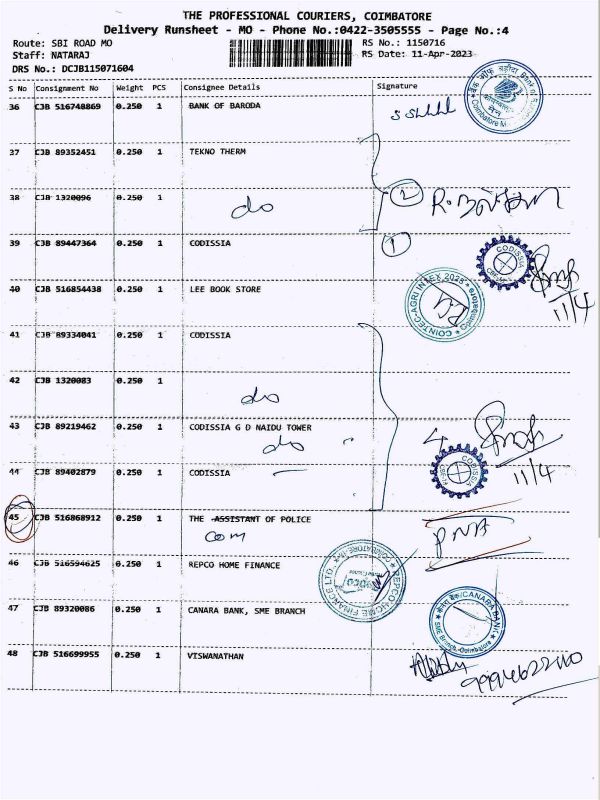 THE PROFESSIONAL COURIERS, COIMBATORE
Delivery Runsheet - MO - Phone No.:0422-3505555 - Page No.:4
Route: SBI ROAD MO RS No.: 1150716
Staff: NATARAJ RS Date: 11-Apr-2023
DRS No.: DCJB115071604
S No Consignment No Weight PCS Consignee Details Signature
36 CJB 516748869 0.250 1 BANK OF BARODA
37 CJB 89352451 0.250 1 TEKNO THERM
38 CJB 1320096 0.250 1 do 2
39 CJB 89447364 0.250 1 CODISSIA 1 CODISSIA
11/4
40 CJB 516854438 0.250 1 LEE BOOK STORE COINTEC-AGRI INTEX 2023 Coimbatore
41 CJB 89334041 0.250 1 CODISSIA
42 CJB 1320083 0.250 1 do
43 CJB 89219462 0.250 1 CODISSIA G D NAIDU TOWER 4
do
44 CJB 89402879 0.250 1 CODISSIA CODISSIA 11/4
45 CJB 516868912 0.250 1 THE ASSISTANT OF POLICE
com
46 CJB 516594625 0.250 1 REPCO HOME FINANCE REPCO HOME FINANCE LTD
47 CJB 89320086 0.250 1 CANARA BANK, SME BRANCH CANARA BANK SME Branch, Coimbatore
48 CJB 516699955 0.250 1 VISWANATHAN